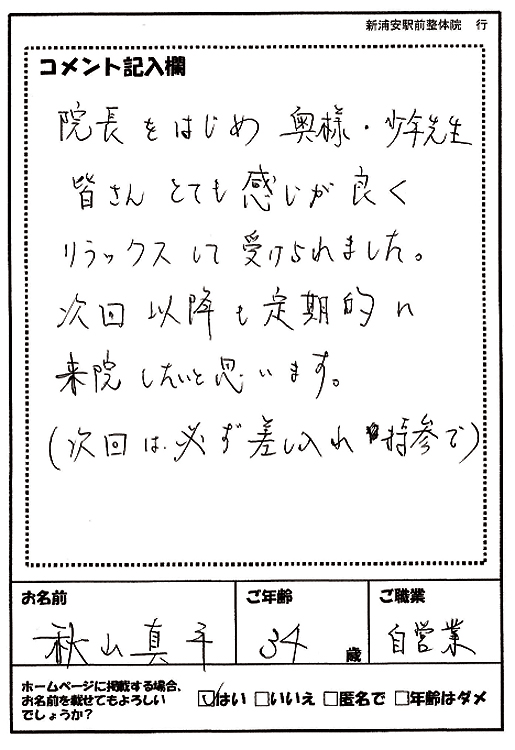 新浦安駅前整体院 行
コメント記入欄
院長をはじめ 奥様・少年先生
皆さん とても 感じが 良く
リラックスして 受けられました。
次回 以降も 定期的に
来院したいと思います。
(次回は 必ず 差し入れ 持参で)
お名前 ご年齢 ご職業
秋山真子 34 歳 自営業
ホームページに掲載する場合、
お名前を載せてもよろしい
でしょうか? はい いいえ 匿名で 年齢はダメ